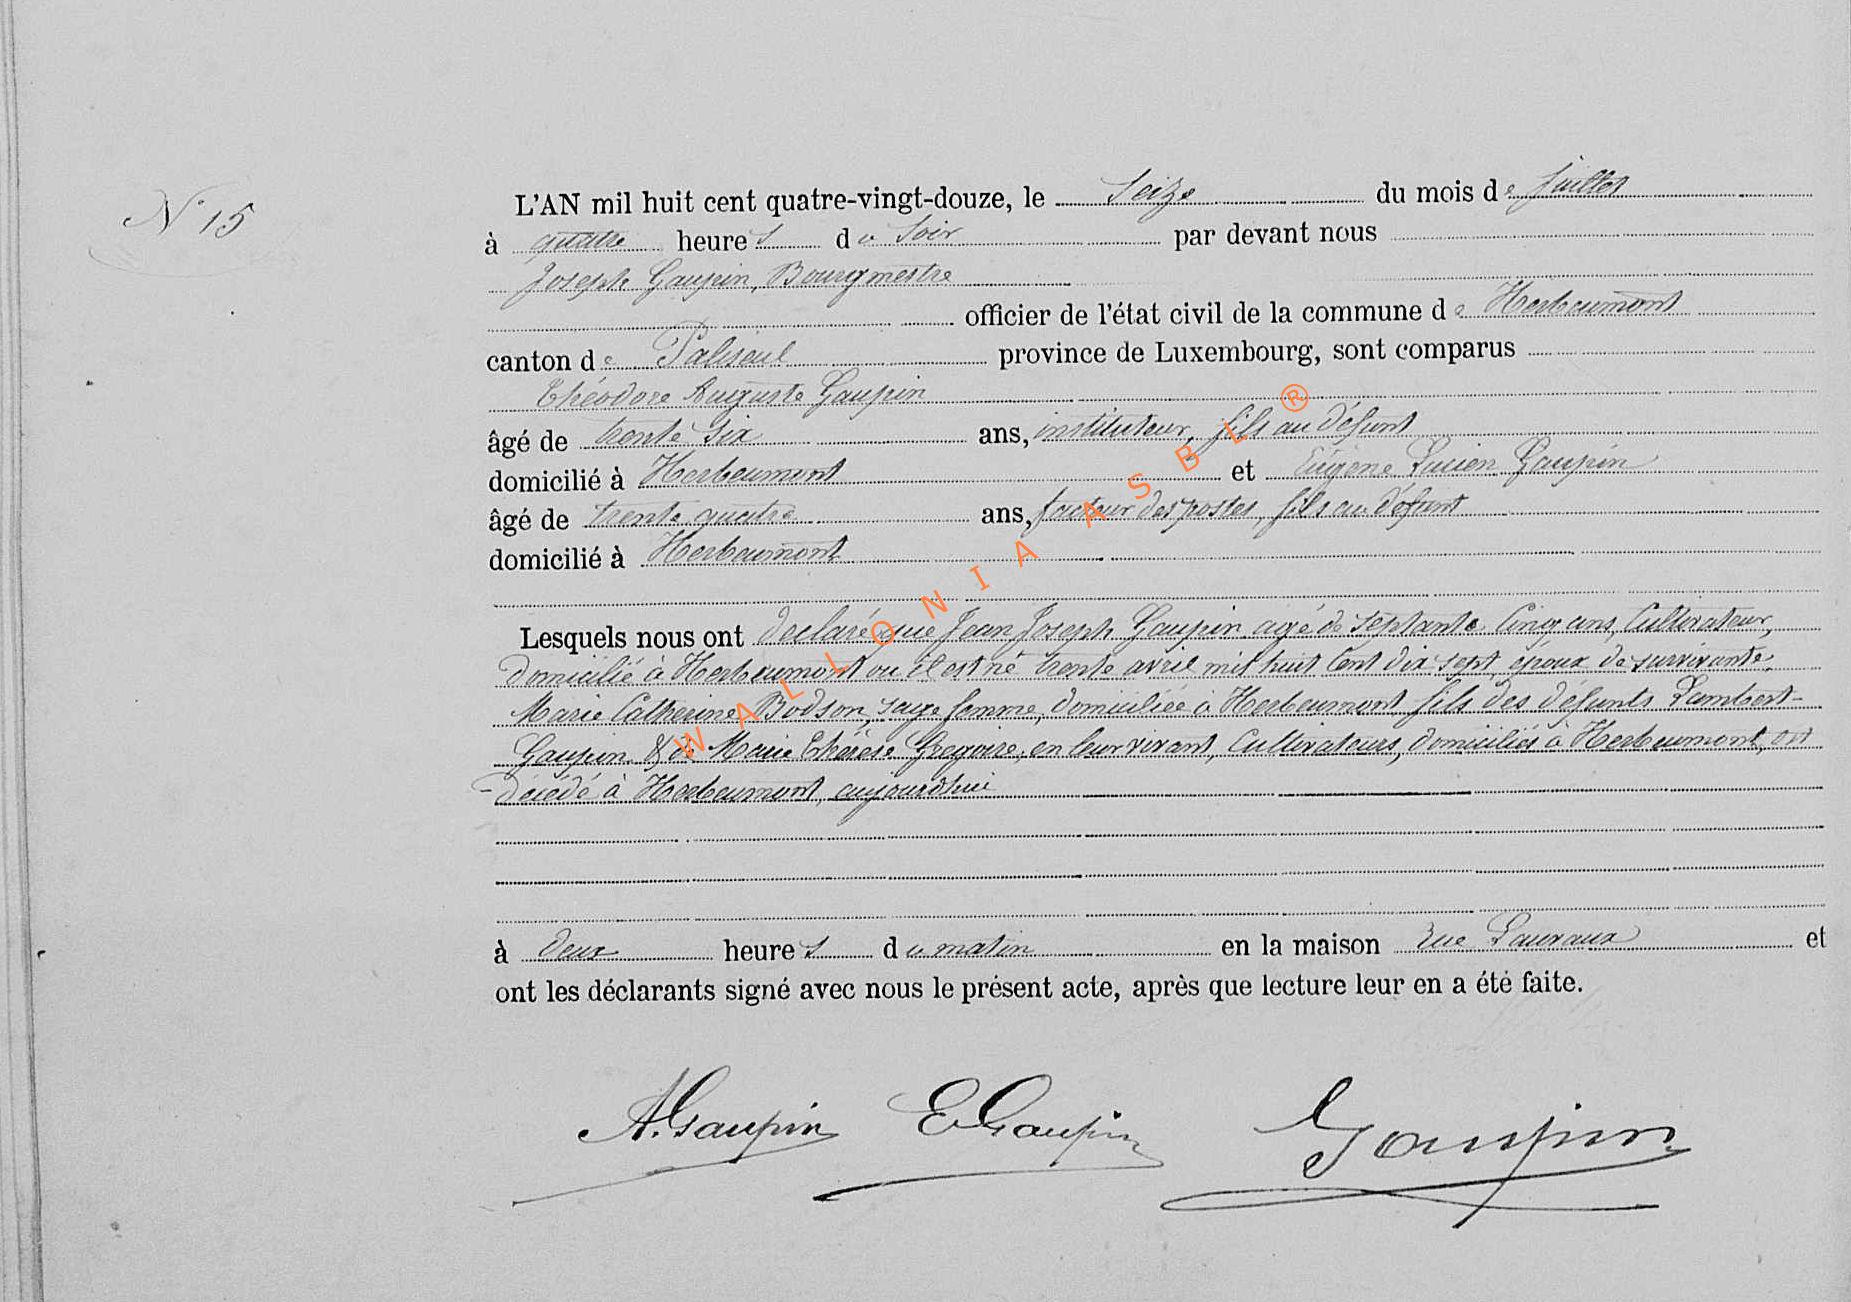 N° 15
L'AN mil huit cent quatre-vingt-douze, le Seize du mois de Juillet
à quatre heures du Soir par devant nous
Joseph Gaupin, Bourgmestre
officier de l'état civil de la commune de Herbeumont
canton de Paliseul province de Luxembourg, sont comparus
Théodore Auguste Gaupin
âgé de trente six ans, instituteur, fils au défunt
domicilié à Herbeumont et Eugène Lucien Gaupin
âgé de trente quatre ans, facteur des postes, fils au défunt
domicilié à Herbeumont
Lesquels nous ont déclaré que Jean Joseph Gaupin agé de septante cinq ans, Cultivateur,
domicilié à Herbeumont ou il est né trente avril mil huit cent dix sept, époux de survivante,
Marie Catherine Bodson, sage femme, domiciliée à Herbeumont fils des défunts Lambert
Gaupin & de Marie Thérèse Gregoire, en leur vivant, Cultivateurs, domiciliés à Herbeumont, est
décédé à Herbeumont, aujourd'hui
à deux heures du matin en la maison rue et
ont les déclarants signé avec nous le présent acte, après que lecture leur en a été faite.
A. Gaupin E Gaupin Gaupin
WALLONIA ASBL ®